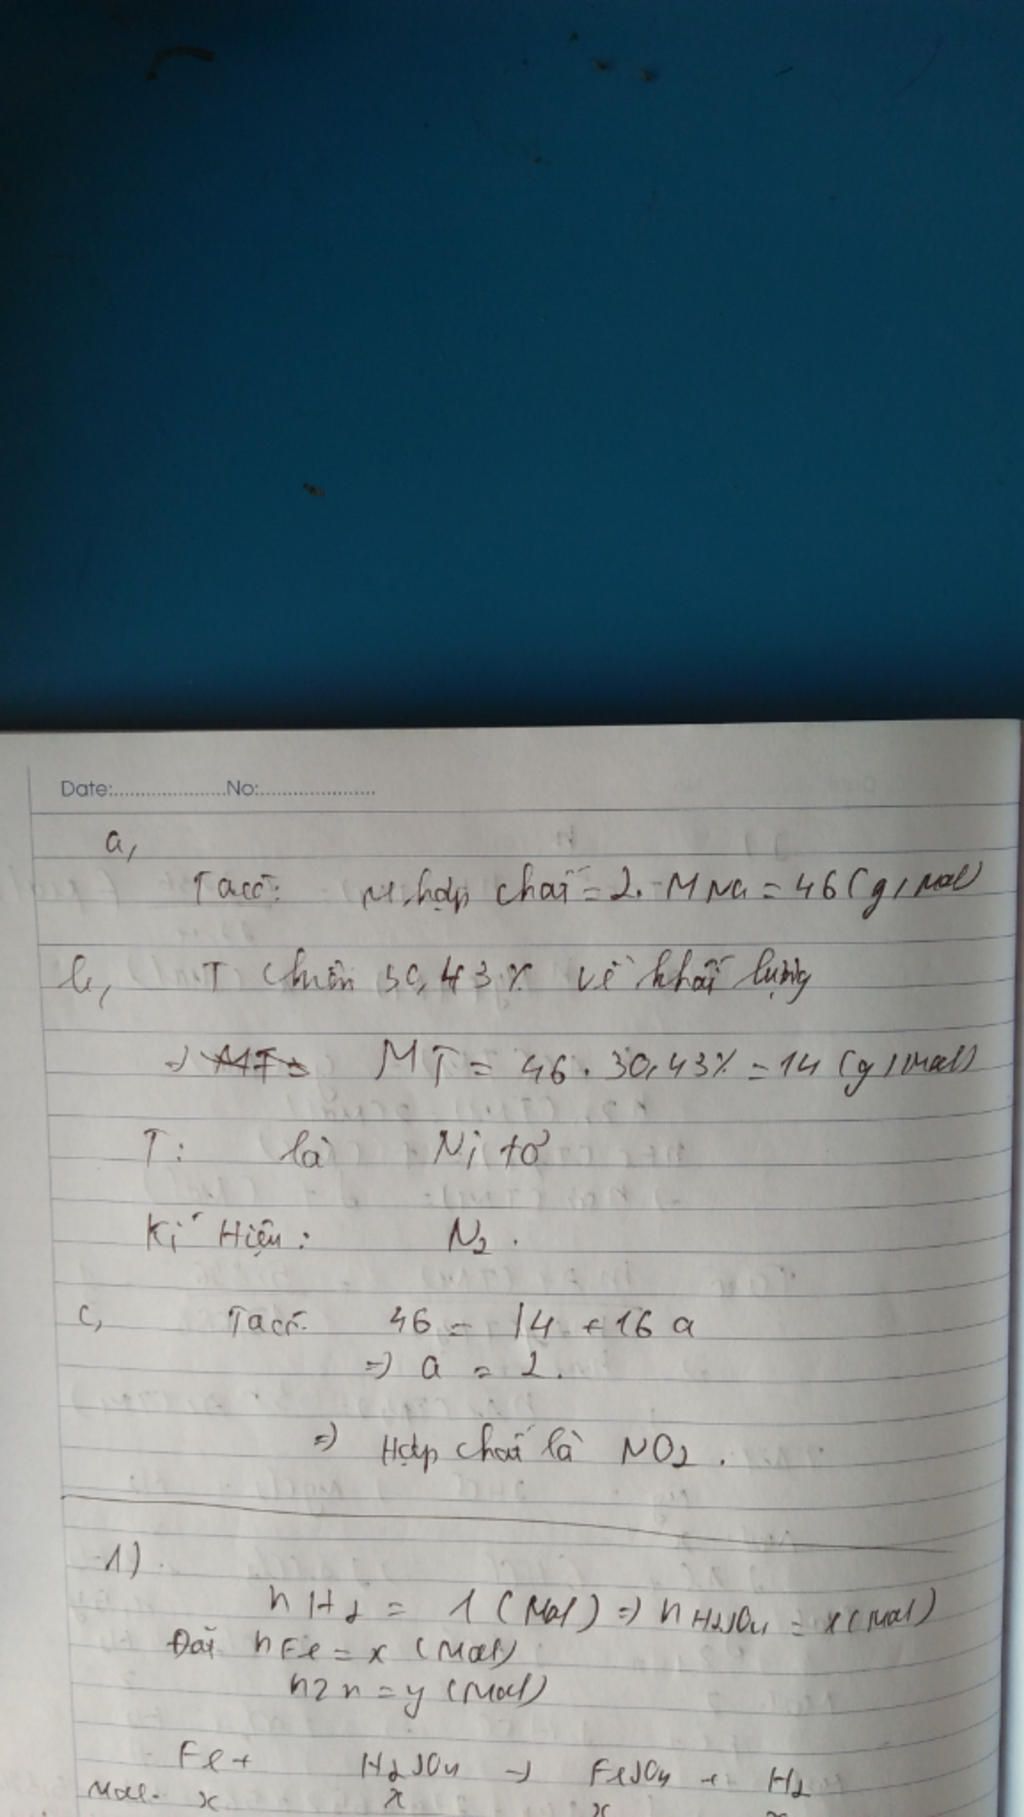 Date:.....................No:.....................
a,
Ta có: M hợp chất = 2. MNa = 46 (g/mol)
b, T chiếm 30,43% về khối lượng
=> MT = 46 . 30,43% = 14 (g/mol)
T: là Ni tơ
Kí Hiệu: N2 .
c, Ta có: 46 = 14 + 16 a
=> a = 2.
=> Hợp chất là NO2 .
1)
nH2 = 1 (mol) => nH2SO4 = x (mol)
Đặt nFe = x (mol)
nZn = y (mol)
Fe + H2SO4 -> FeSO4 + H2
mol. x x x